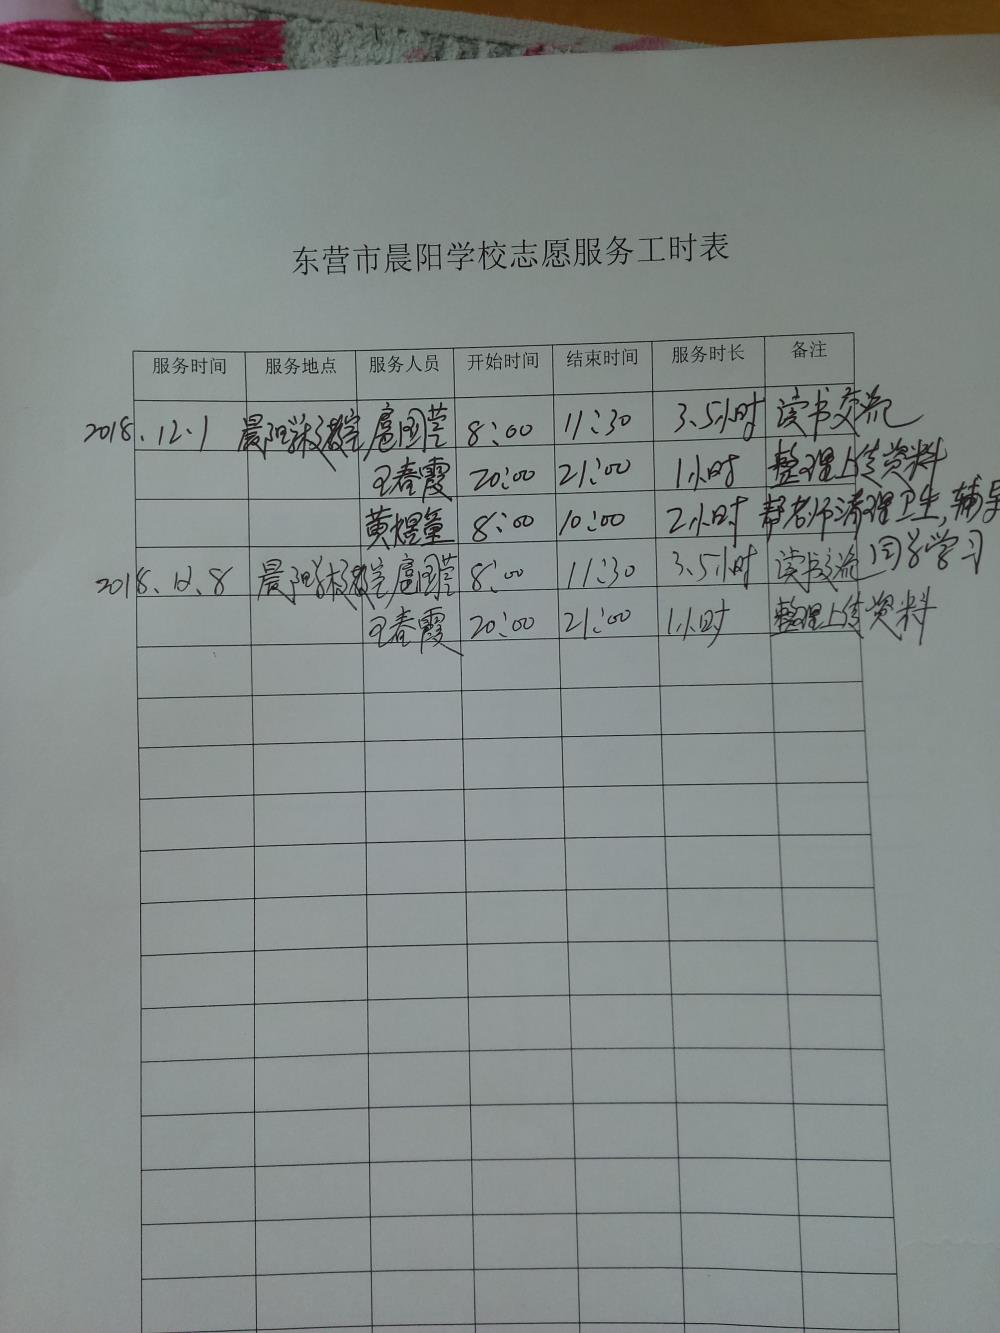 东营市晨阳学校志愿服务工时表
服务时间 服务地点 服务人员 开始时间 结束时间 服务时长 备注
2018.12.1 晨阳学校教室 扈国营 8:00 11:30 3.5小时 读书交流
王春霞 20:00 21:00 1小时 整理上传资料
黄煜童 8:00 10:00 2小时 帮老师清理卫生,辅导
同学学习
2018.12.8 晨阳学校教室 扈国营 8:00 11:30 3.5小时 读书交流
王春霞 20:00 21:00 1小时 整理上传资料